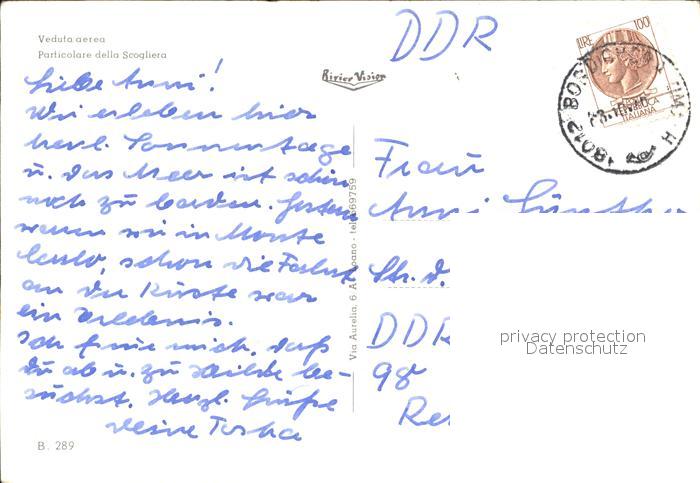 Veduta aerea
Particolare della Scogliera
Liebe Anni!
Wir erleben hier
herrl. Sonnentage
u. das Meer ist schön
noch zu baden. Gestern
waren wir in Monte
Carlo, schon die Fahrt
an der Küste war
ein Erlebnis.
Ich freue mich, daß
Du ab u. zu Hilde be-
suchst. Herzl. Grüße
Deine Toska
B. 289
Rivier Vision
Via Aurelia, 6 - tel. 669759
DDR
LIRE 100
REPUBBLICA
ITALIANA
18012
Frau
Anni
Str. d.
DDR
98
privacy protection
Datenschutz